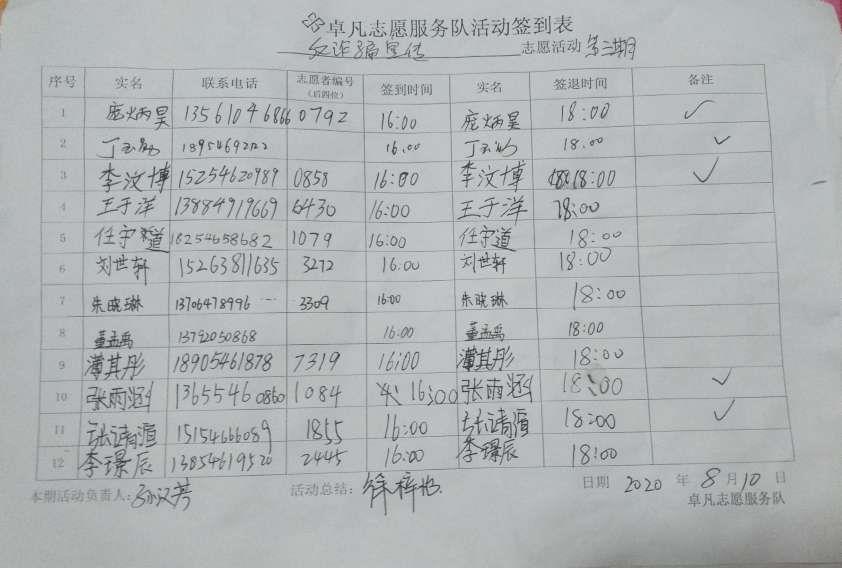 卓凡志愿服务队活动签到表
反诈骗宣传 志愿活动 第三期
序号 实名 联系电话 志愿者编号（后四位） 签到时间 实名 签退时间 备注
1 庞炳昊 13561046866 0792 16:00 庞炳昊 18:00 ✓
2 16:00 18:00 ✓
3 李汶博 15254620989 0858 16:00 李汶博 18:00 ✓
4 王于洋 13884919669 6430 16:00 王于洋 18:00
5 任守道 18254658682 1079 16:00 任守道 18:00
6 刘世轩 15263811635 3272 16:00 刘世轩 18:00
7 朱晓琳 13706478996 3309 16:00 朱晓琳 18:00
8 13792050868 16:00 18:00
9 薄其彤 18905461878 7319 16:00 薄其彤 18:00
10 张雨涵 13655460860 1084 16:00 张雨涵 18:00 ✓
11 张靖滇 15154666089 1855 16:00 张靖滇 18:00 ✓
12 李璟辰 13854619520 2445 16:00 李璟辰 18:00
本期活动负责人: 孙汉芳 活动总结: 徐梓 日期 2020 年 8 月 10 日
卓凡志愿服务队